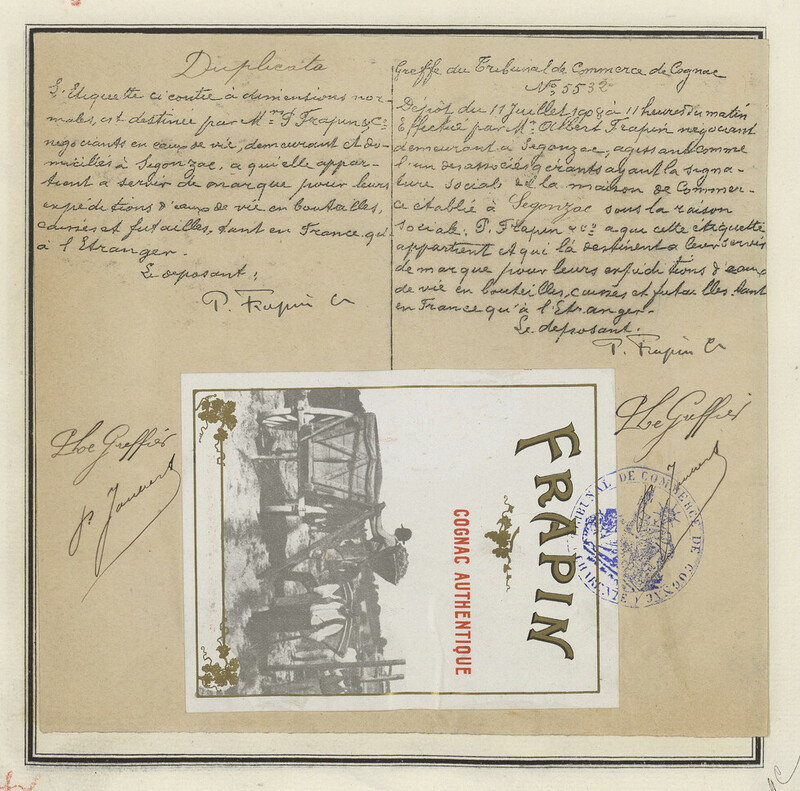 Duplicata
L'Etiquette ci contre à dimensions nor-
males, est destinée par Mrs P. Frapin & Co
négociants en eaux de vie, demeurant et do-
miciliés à Segonzac, a qu'elle appar-
tient a servir de marque pour leurs
expéditions d'eaux de vie en bouteilles,
caisses et futailles, tant en France qu'
à l'Etranger.
Le déposant:
P. Frapin Co
Greffe du Tribunal de Commerce de Cognac
No 5532
Dépôt du 11 Juillet 1908 à 11 heures du matin
Effectué par Mr Albert Frapin négociant
demeurant à Segonzac, agissant comme
l'un des associés gérants ayant la signa-
ture sociale de la maison de Commer-
ce établie à Segonzac sous la raison
sociale: P. Frapin & Co a que cette étiquette
appartient et qui la destinent a leur servir
de marque pour leurs expéditions d'eaux
de vie en bouteilles, caisses et futailles tant
en France qu'à l'Etranger.
Le déposant.
P. Frapin Co
Greffier
Greffier
FRAPIN
COGNAC AUTHENTIQUE
TRIBUNAL DE COMMERCE DE COGNAC
CHARENTE